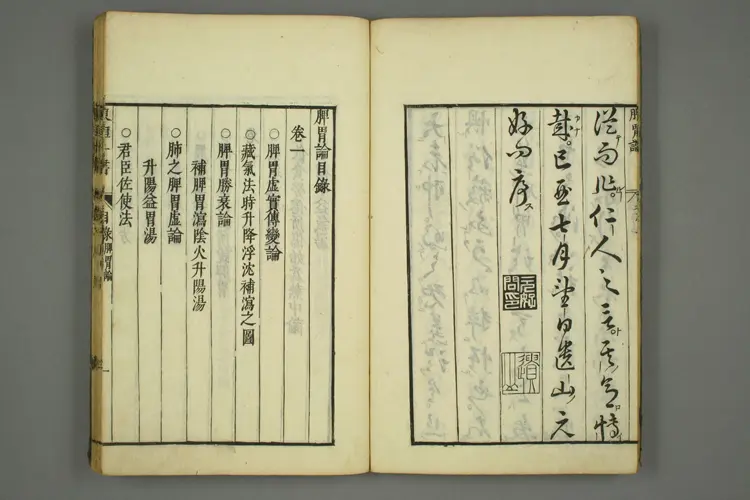 脾胃論
從而作仁人之言其意博
哉己酉七月望日遺山元
好問序
元好問印
遺山
脾胃論目錄
卷一
○脾胃虛實傳變論
○藏氣法時升降浮沈補瀉之圖
○脾胃勝衰論
補脾胃瀉陰火升陽湯
○肺之脾胃虛論
升陽益胃湯
○君臣佐使法
東垣十書 目錄 脾胃論 一